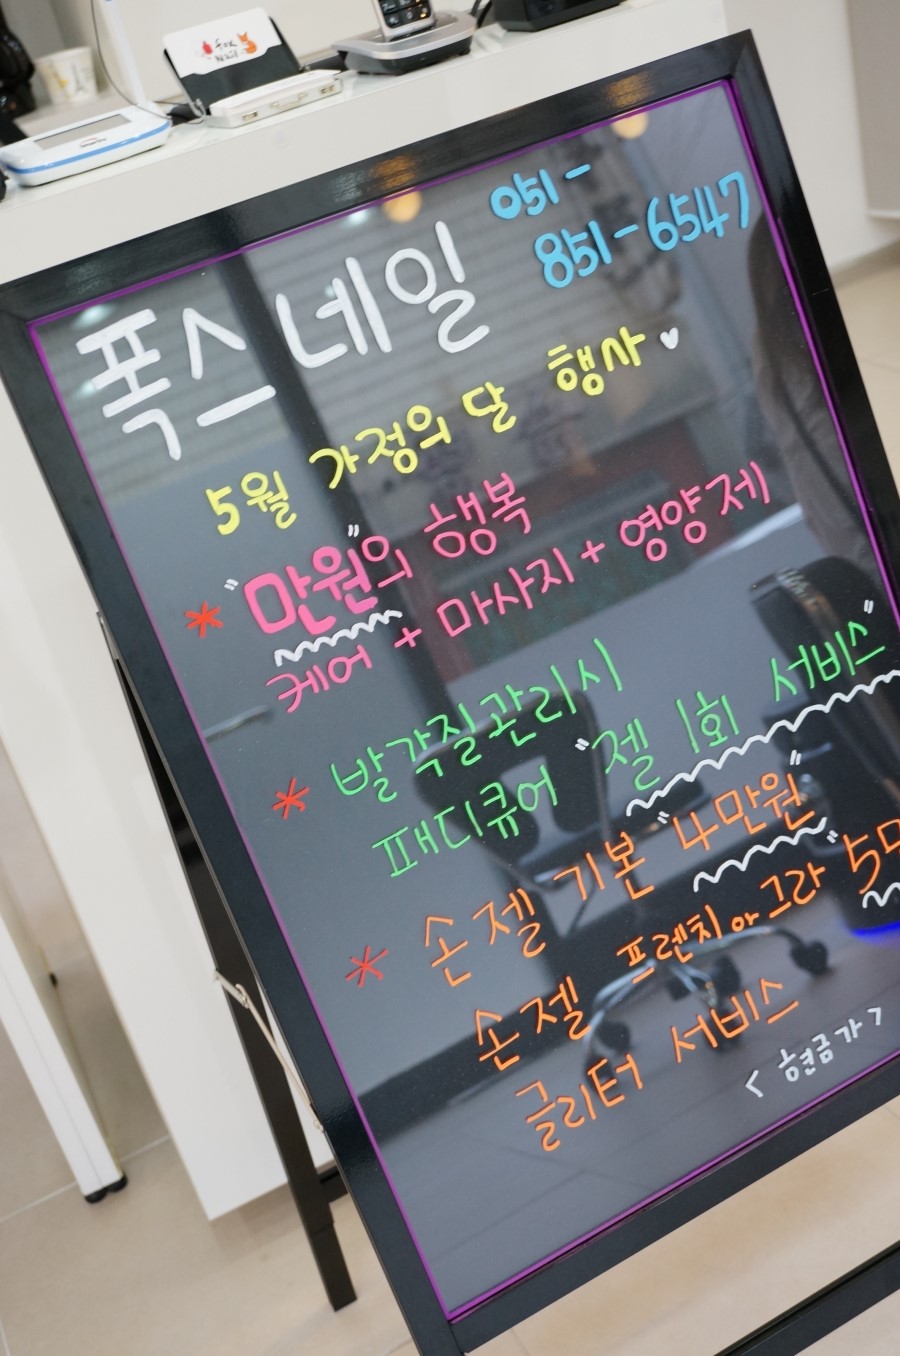 fox
Nail
051-
851-6547
폭스네일
5월 가정의 달 행사♥
* "만원"의 행복
케어 + 마사지 + 영양제
* 발각질관리시
패디큐어 "젤 1회 서비스"
* 손젤 기본 "4만원"
손젤 프렌치 or 그라 "5만
글리터 서비스
<현금가>